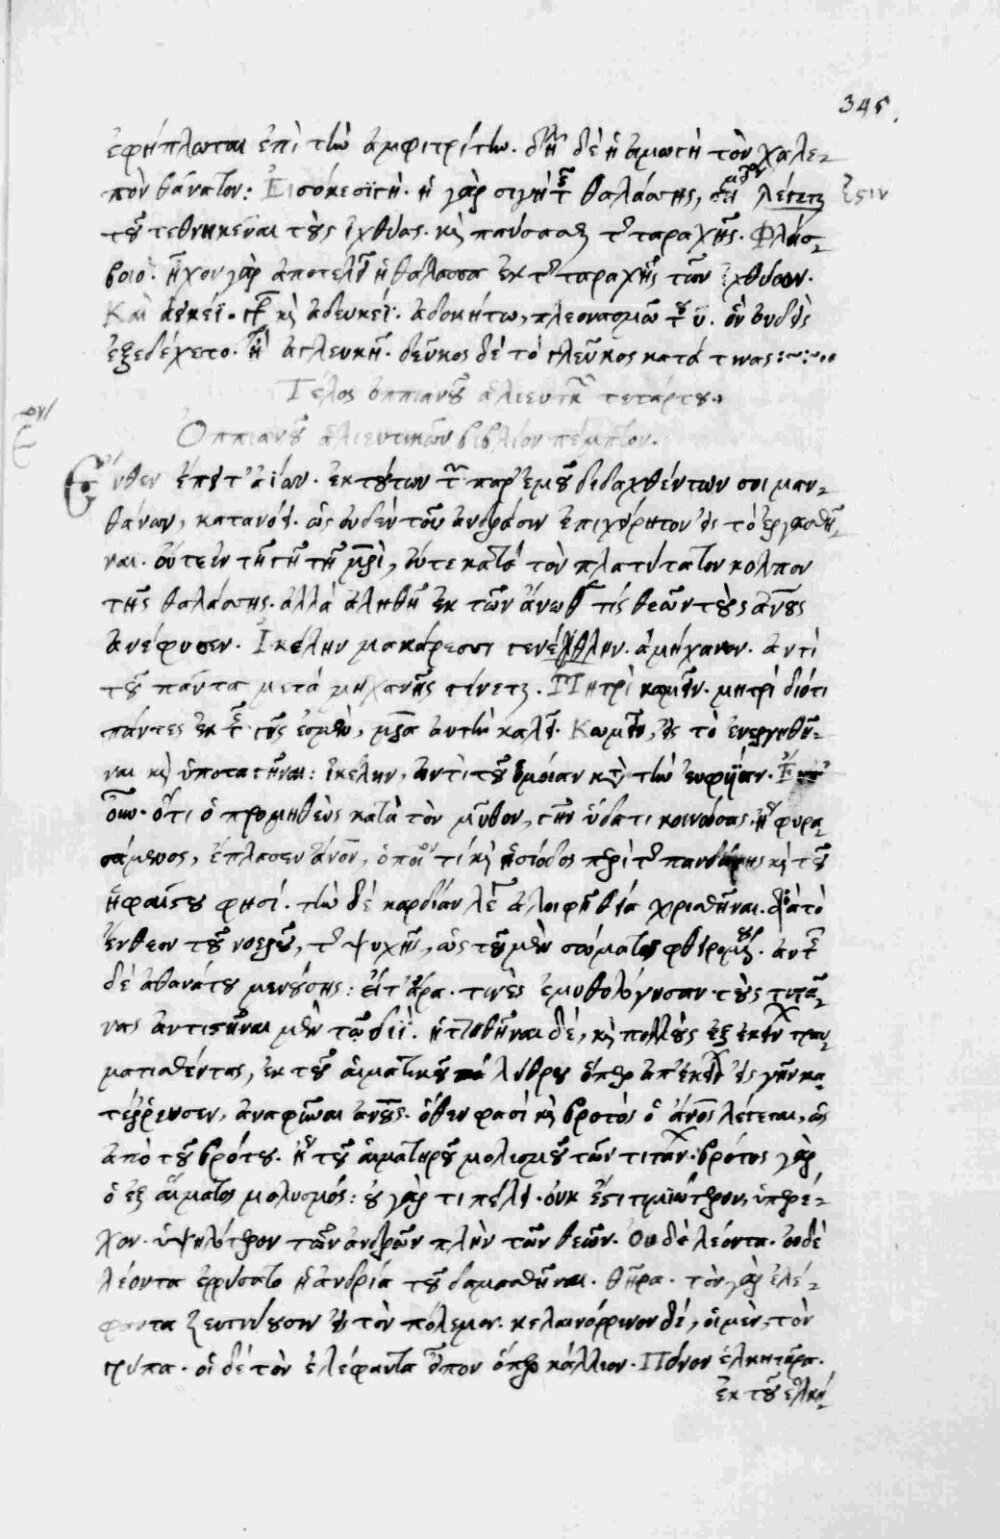 345
ἐφήπλωται ἐπὶ τὴν ἀμφιτρίτην. δὲ ἡ σιωπὴ τὸν χαλε-
πὸν θάνατον: Εἰσόκε σιγή. ἡ γὰρ σιγὴ τ θαλάσσης, λέγεται
τοῦ τεθνηκέναι τοὺς ἰχθύας. καὶ παύσασθαι τ ταραχῆς. Φλοίσ-
βοιο. ἦχον γὰρ ἀποτελεῖ ἡ θάλασσα ἐκ τ ταραχῆς τῶν ἰχθύων.
καὶ ἀδευκέϊ. ἀδοκήτῳ, πλεονασμῷ τοῦ ϋ. ὃν οὐδεὶς
ἐξεδέχετο. ἢ ἀγλευκῆ. δεῦκος δὲ τὸ γλεῦκος κατά τινας:
Τέλος ὀππιανοῦ ἁλιευτικῶν τετάρτου.
Ὀππιανοῦ ἁλιευτικῶν βιβλίον πέμπτον.
Ἔνθεν ἐκ τούτων τ παρ' ἐμοῦ διδαχθέντων σοι μαν-
θάνων, κατανόει. ὡς οὐδὲν τοῖς ἀνδράσιν ἐπιχείρητον εἰς τὸ ἐργασθῆ-
ναι. οὔτε ἐν τῇ γῇ τῇ μητρὶ, οὔτε κατὰ τὸν πλατύτατον κόλπον
τῆς θαλάσσης. ἀλλὰ ἀληθῆ ἐκ τῶν ἄνωθεν τίς θεῶν τοὺς ἀνους
ἀνέφυσεν. Ἰκέλην μακάρεσσι γενέθλην. ἀμήχανον. ἀντὶ
τοῦ πάντα μετὰ μηχανῆς γίνεται. Μητρὶ καμεῖν. μητρὶ διότι
πάντες ἐκ τ γῆς ἐσμὲν, μρα αὐτὴν καλεῖ. εἰς τὸ ἐνεργηθῆ-
ναι καὶ ὑποταγῆναι: ἰκέλην, ἀντὶ τοῦ ὁμοίαν κατὰ τὴν εὐφυΐαν.
ὅτι ὁ προμηθεὺς κατὰ τὸν μῦθον, γῆν ὕδατι κοινώσας. ἢ φυρα-
σάμενος, ἔπλασεν ἄνον, ὁποῖον τί καὶ ἡσίοδος περὶ τ πανδώρης καὶ τοῦ
ἡφαίστου φησί. τὴν δὲ καρδίαν λέγει ἀλοιφῇ θείᾳ χρισθῆναι. διὰ τὸ
ἔνθεον τοῦ νοεροῦ, τ ψυχῆς, ὡς τοῦ μὲν σώματος φθειρομένου. αὐτ
δὲ ἀθανάτου μενούσης: εἴτ' ἄρα. τινὲς ἐμυθολόγησαν τοὺς τιτᾶ-
νας ἀντιστῆναι μὲν τῷ διΐ. ἡττηθῆναι δέ, καὶ πολλοὺς ἐξ ἐκείνων τραυ-
ματισθέντας, ἐκ τοῦ αἱματικοῦ λύθρου ὅπερ ἀπ' ἐκείνων εἰς γῆν κα-
τέρρευσεν, ἀναφῦναι ἀνους. ὅθεν φασὶ καὶ βροτὸς ὁ ἄνος λέγεται, ὡς
ἀπὸ τοῦ βρότου. ἢ τοῦ αἱματηροῦ μολυσμοῦ τῶν τιτάνων. βρότος γὰρ
ὁ ἐξ αἵματος μολυσμός: οὐ γάρ τι πέλει. οὐκ ἔστι τιμιώτερον, ὑπερέ-
χον. ὑψηλότερον τῶν ἀνδρῶν πλὴν τῶν θεῶν. Οὐδὲ λέοντα. οὐδὲ
λέοντα ἐρρύσατο ἡ ἀνδρία τοῦ δαμασθῆναι. θῆρα. τὸν γὰρ ἐλέ-
φαντα ζευγνύουσιν εἰς τὸν πόλεμον. κελαινόρρινον δέ, οἱ μὲν, τὸν
γρύπα. οἱ δὲ τὸν ἐλέφαντα εἶπον ὅπερ κάλλιον. Πόνον ἑλκητῆρα.
ἐκ τοῦ ἑλκύ-